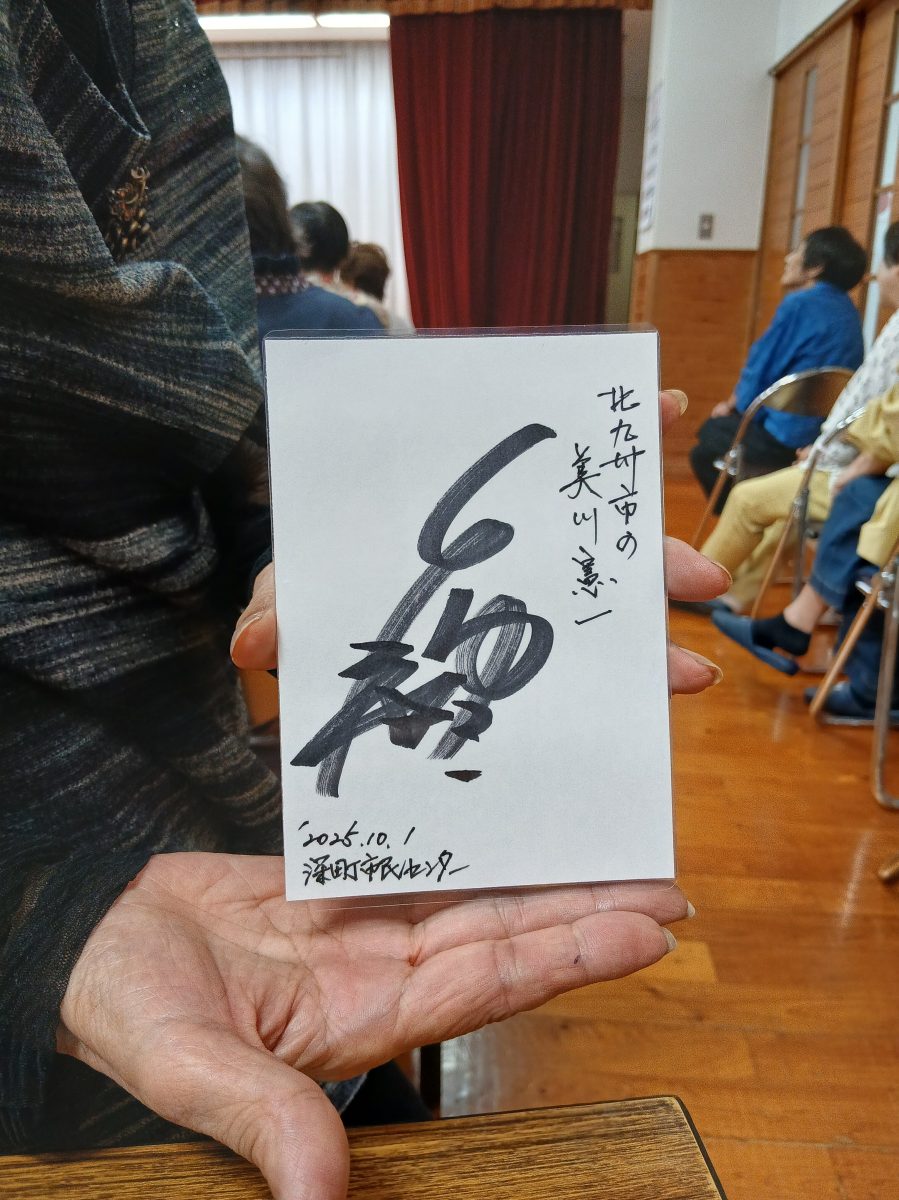 北九州市の
美川憲一
'2025.10.1
深町市民センター